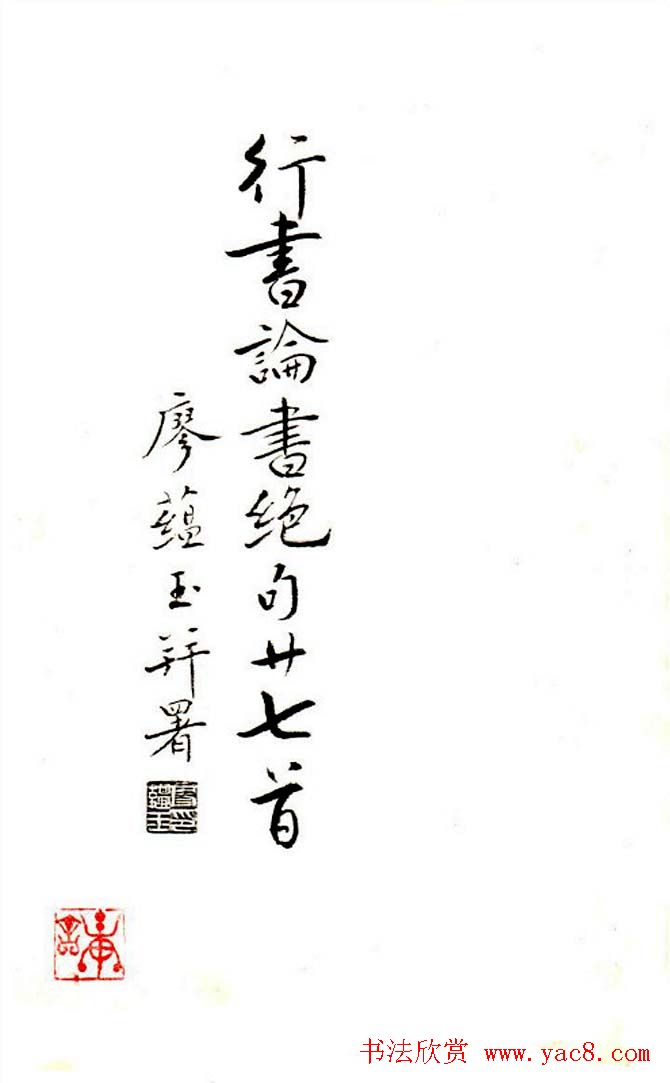 行書論書絶句廿七首
廖蘊玉并署
书法欣赏 www.yac8.com